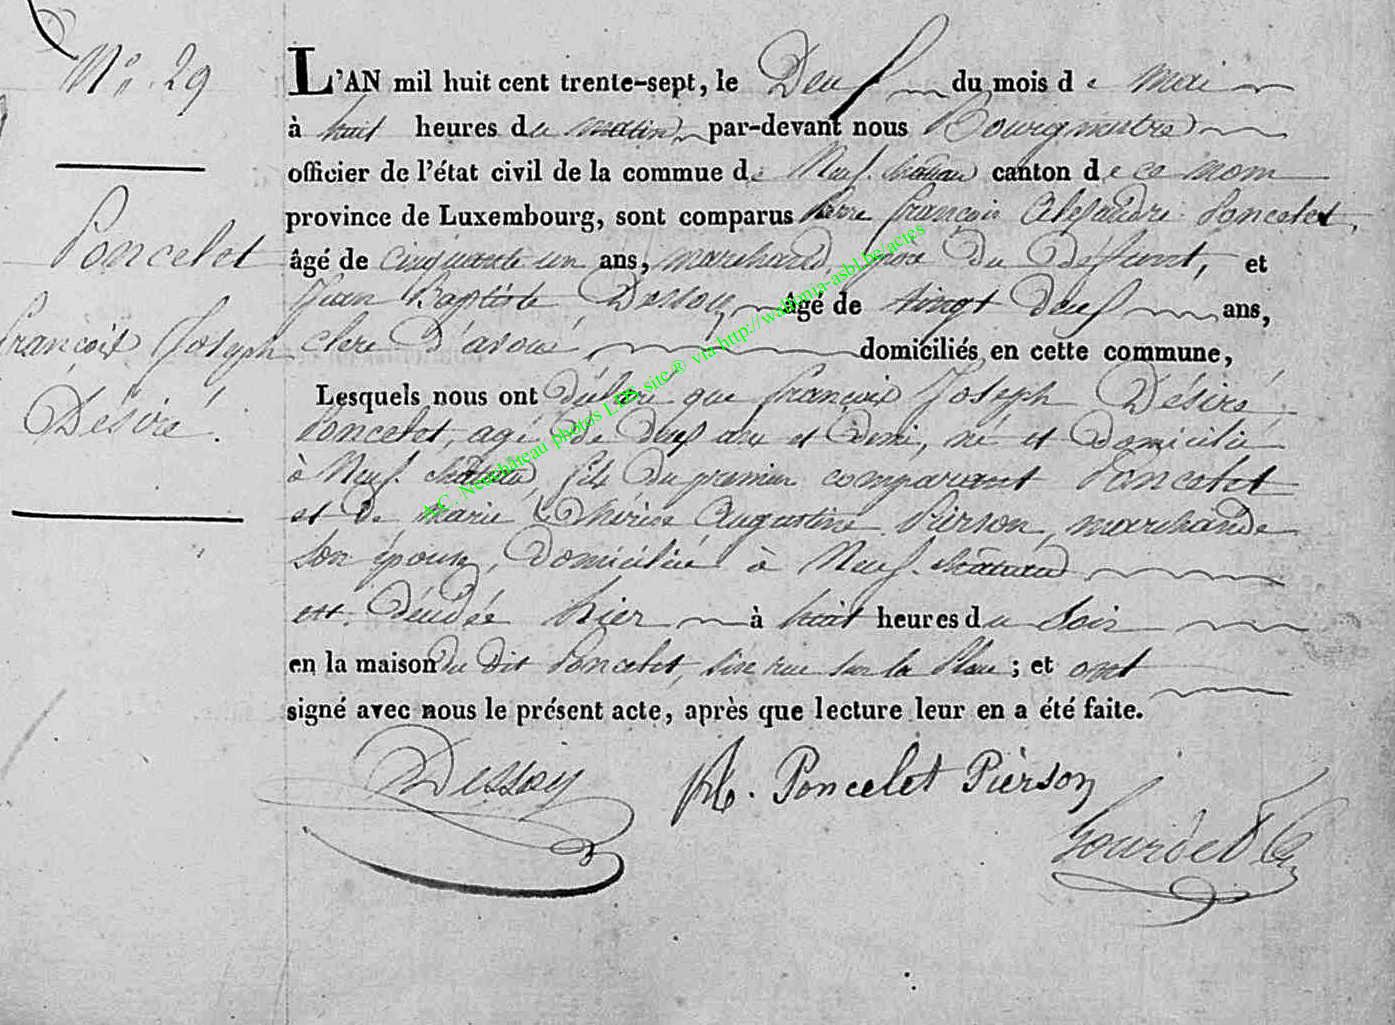 N° 29
L'AN mil huit cent trente-sept, le Deux du mois de mai
à huit heures du matin par-devant nous Bourgmestre
officier de l'état civil de la commue de Neufchâteau canton de ce nom
province de Luxembourg, sont comparus Pierre françois Alexandre Poncelet,
Poncelet
âgé de cinquante un ans, marchand père du défunt, et
Jean Baptiste Dessoy âgé de vingt deux ans,
françois Joseph
clerc d'avoué domiciliés en cette commune,
Désiré.
Lesquels nous ont déclaré que françois Joseph Désiré
Poncelet, agé de deux ans et demi, né et domicilié
à Neufchâteau, fils du premier comparant Poncelet
et de marie Thérèse Augustine Pierson, marchande
son épouse, domiciliée à Neufchâteau
est décédée hier à huit heures du soir
en la maison du dit Poncelet, sise rue sur la Place ; et ont
signé avec nous le présent acte, après que lecture leur en a été faite.
Dessoy Poncelet Pièrson
Gourdet
A.C. Neufchâteau photos LDS site ® via http://wallonia-asbl.be/actes